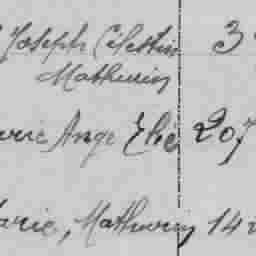 Joseph Célestin 3
Mathurin
Marie Ange Élie 207
Marie, Mathurin 14